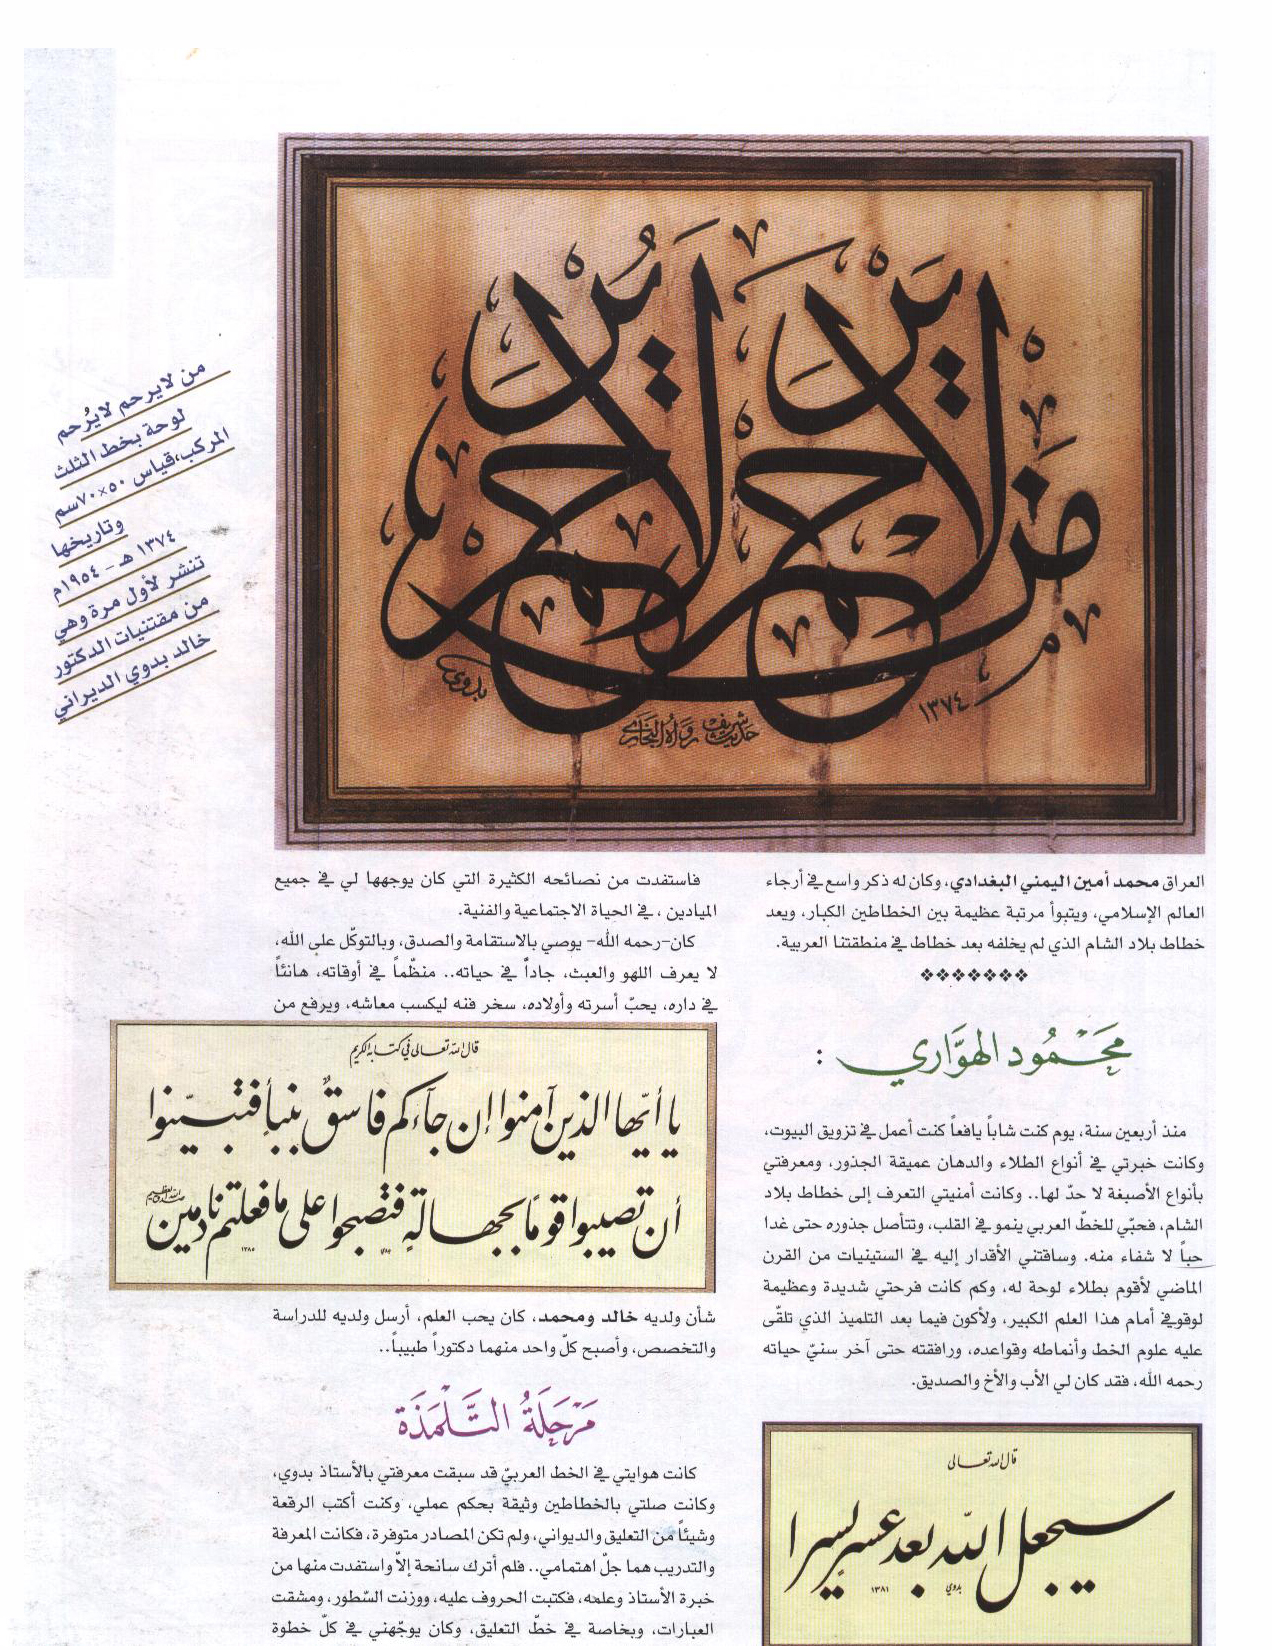 من لا يرحم لا يرحم
١٣٧٤
بدوي
حديث شريف رواه البخاري
من لايرحم لايُرحم
لوحة بخط الثلث
المركب،قياس ٥٠×٧٠سم
وتاريخها
١٣٧٤ هـ - ١٩٥٤م
تنشر لأول مرة وهي
من مقتنيات الدكتور
خالد بدوي الديراني
العراق محمد أمين اليمني البغدادي، وكان له ذكر واسع في أرجاء
العالم الإسلامي، ويتبوأ مرتبة عظيمة بين الخطاطين الكبار، ويعد
خطاط بلاد الشام الذي لم يخلفه بعد خطاط في منطقتنا العربية.
❖❖❖❖❖❖❖
مَحْمُود الهوَّاري :
منذ أربعين سنة، يوم كنت شاباً يافعاً كنت أعمل في تزويق البيوت،
وكانت خبرتي في أنواع الطلاء والدهان عميقة الجذور، ومعرفتي
بأنواع الأصبغة لا حدّ لها.. وكانت أمنيتي التعرف إلى خطاط بلاد
الشام، فحبّي للخطّ العربي ينمو في القلب، وتتأصل جذوره حتى غدا
حباً لا شفاء منه. وساقتني الأقدار إليه في الستينيات من القرن
الماضي لأقوم بطلاء لوحة له، وكم كانت فرحتي شديدة وعظيمة
لوقوفي أمام هذا العلم الكبير، ولأكون فيما بعد التلميذ الذي تلقّى
عليه علوم الخط وأنماطه وقواعده، ورافقته حتى آخر سنيّ حياته
رحمه الله، فقد كان لي الأب والأخ والصديق.
قال الله تعالى
سيجعل الله بعد عسر يسرا
بدوي ١٣٨١
فاستفدت من نصائحه الكثيرة التي كان يوجهها لي في جميع
الميادين ، في الحياة الاجتماعية والفنية.
كان-رحمه الله- يوصي بالاستقامة والصدق، وبالتوكّل على الله،
لا يعرف اللهو والعبث، جاداً في حياته.. منظّماً في أوقاته، هانئاً
في داره، يحبّ أسرته وأولاده، سخر فنه ليكسب معاشه، ويرفع من
قال الله تعالى في كتابه الكريم
يا أيّها الذين آمنوا إن جآءكم فاسقٌ بنبأ فتبيّنوا
أن تصيبوا قومًا بجهالةٍ فتصبحوا على ما فعلتم نادمين
صدق الله العظيم
١٣٨٥
شأن ولديه خالد ومحمد، كان يحب العلم، أرسل ولديه للدراسة
والتخصص، وأصبح كلّ واحد منهما دكتوراً طبيباً..
مَرْحَلَةُ التَّلْمَذَة
كانت هوايتي في الخط العربيّ قد سبقت معرفتي بالأستاذ بدوي،
وكانت صلتي بالخطاطين وثيقة بحكم عملي، وكنت أكتب الرقعة
وشيئاً من التعليق والديواني، ولم تكن المصادر متوفرة، فكانت المعرفة
والتدريب هما جلّ اهتمامي.. فلم أترك سانحة إلاّ واستفدت منها من
خبرة الأستاذ وعلمه، فكتبت الحروف عليه، ووزنت السّطور، ومشقت
العبارات، وبخاصة في خطّ التعليق، وكان يوجّهني في كلّ خطوة